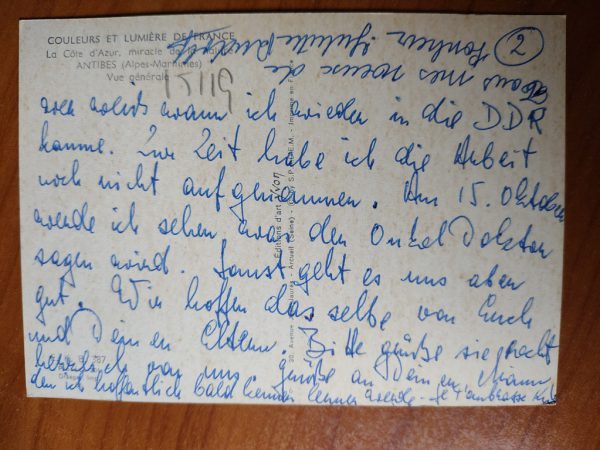 COULEURS ET LUMIÈRE DE FRANCE
La Côte d'Azur, miracle de la nature
ANTIBES (Alpes-Maritimes)
Vue générale
2
tous mes voeux de
bonheur
wer weiß wann ich wieder in die DDR
komme. Zur Zeit habe ich die Arbeit
noch nicht aufgenommen. Am 15. Oktober
werde ich sehen was der Onkel Doktor
sagen wird. Sonst geht es uns aber
gut. Wir hoffen das selbe von Euch
und Deinen Eltern. Bitte grüße sie recht
herzlich von uns grüße an Deinen Mann
den ich hoffentlich bald kennen lernen werde - Je t'embrasse
Editions d'art YVON